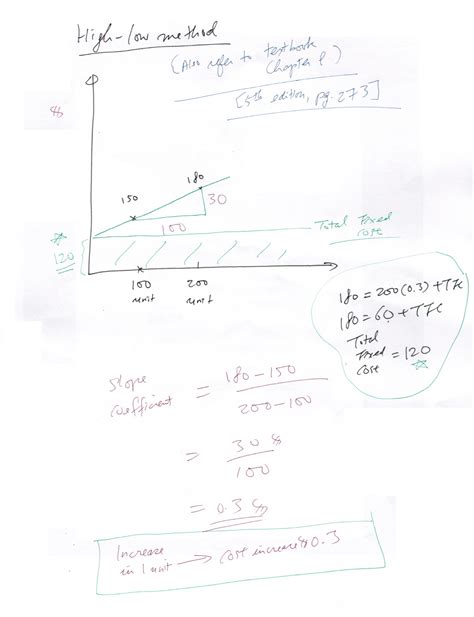 High-low method
(Also refer to textbook
Chapter 8)
[5th edition, pg. 273]
$
180
150
30
100
Total Fixed
Cost
*
120
100
unit
200
unit
180 = 200(0.3) + TFC
180 = 60 + TFC
Total
Fixed = 120
Cost
Slope
coefficient = 180-150
200-100
= 30 $
100
= 0.3 $
Increase
in 1 unit → cost increase $ 0.3